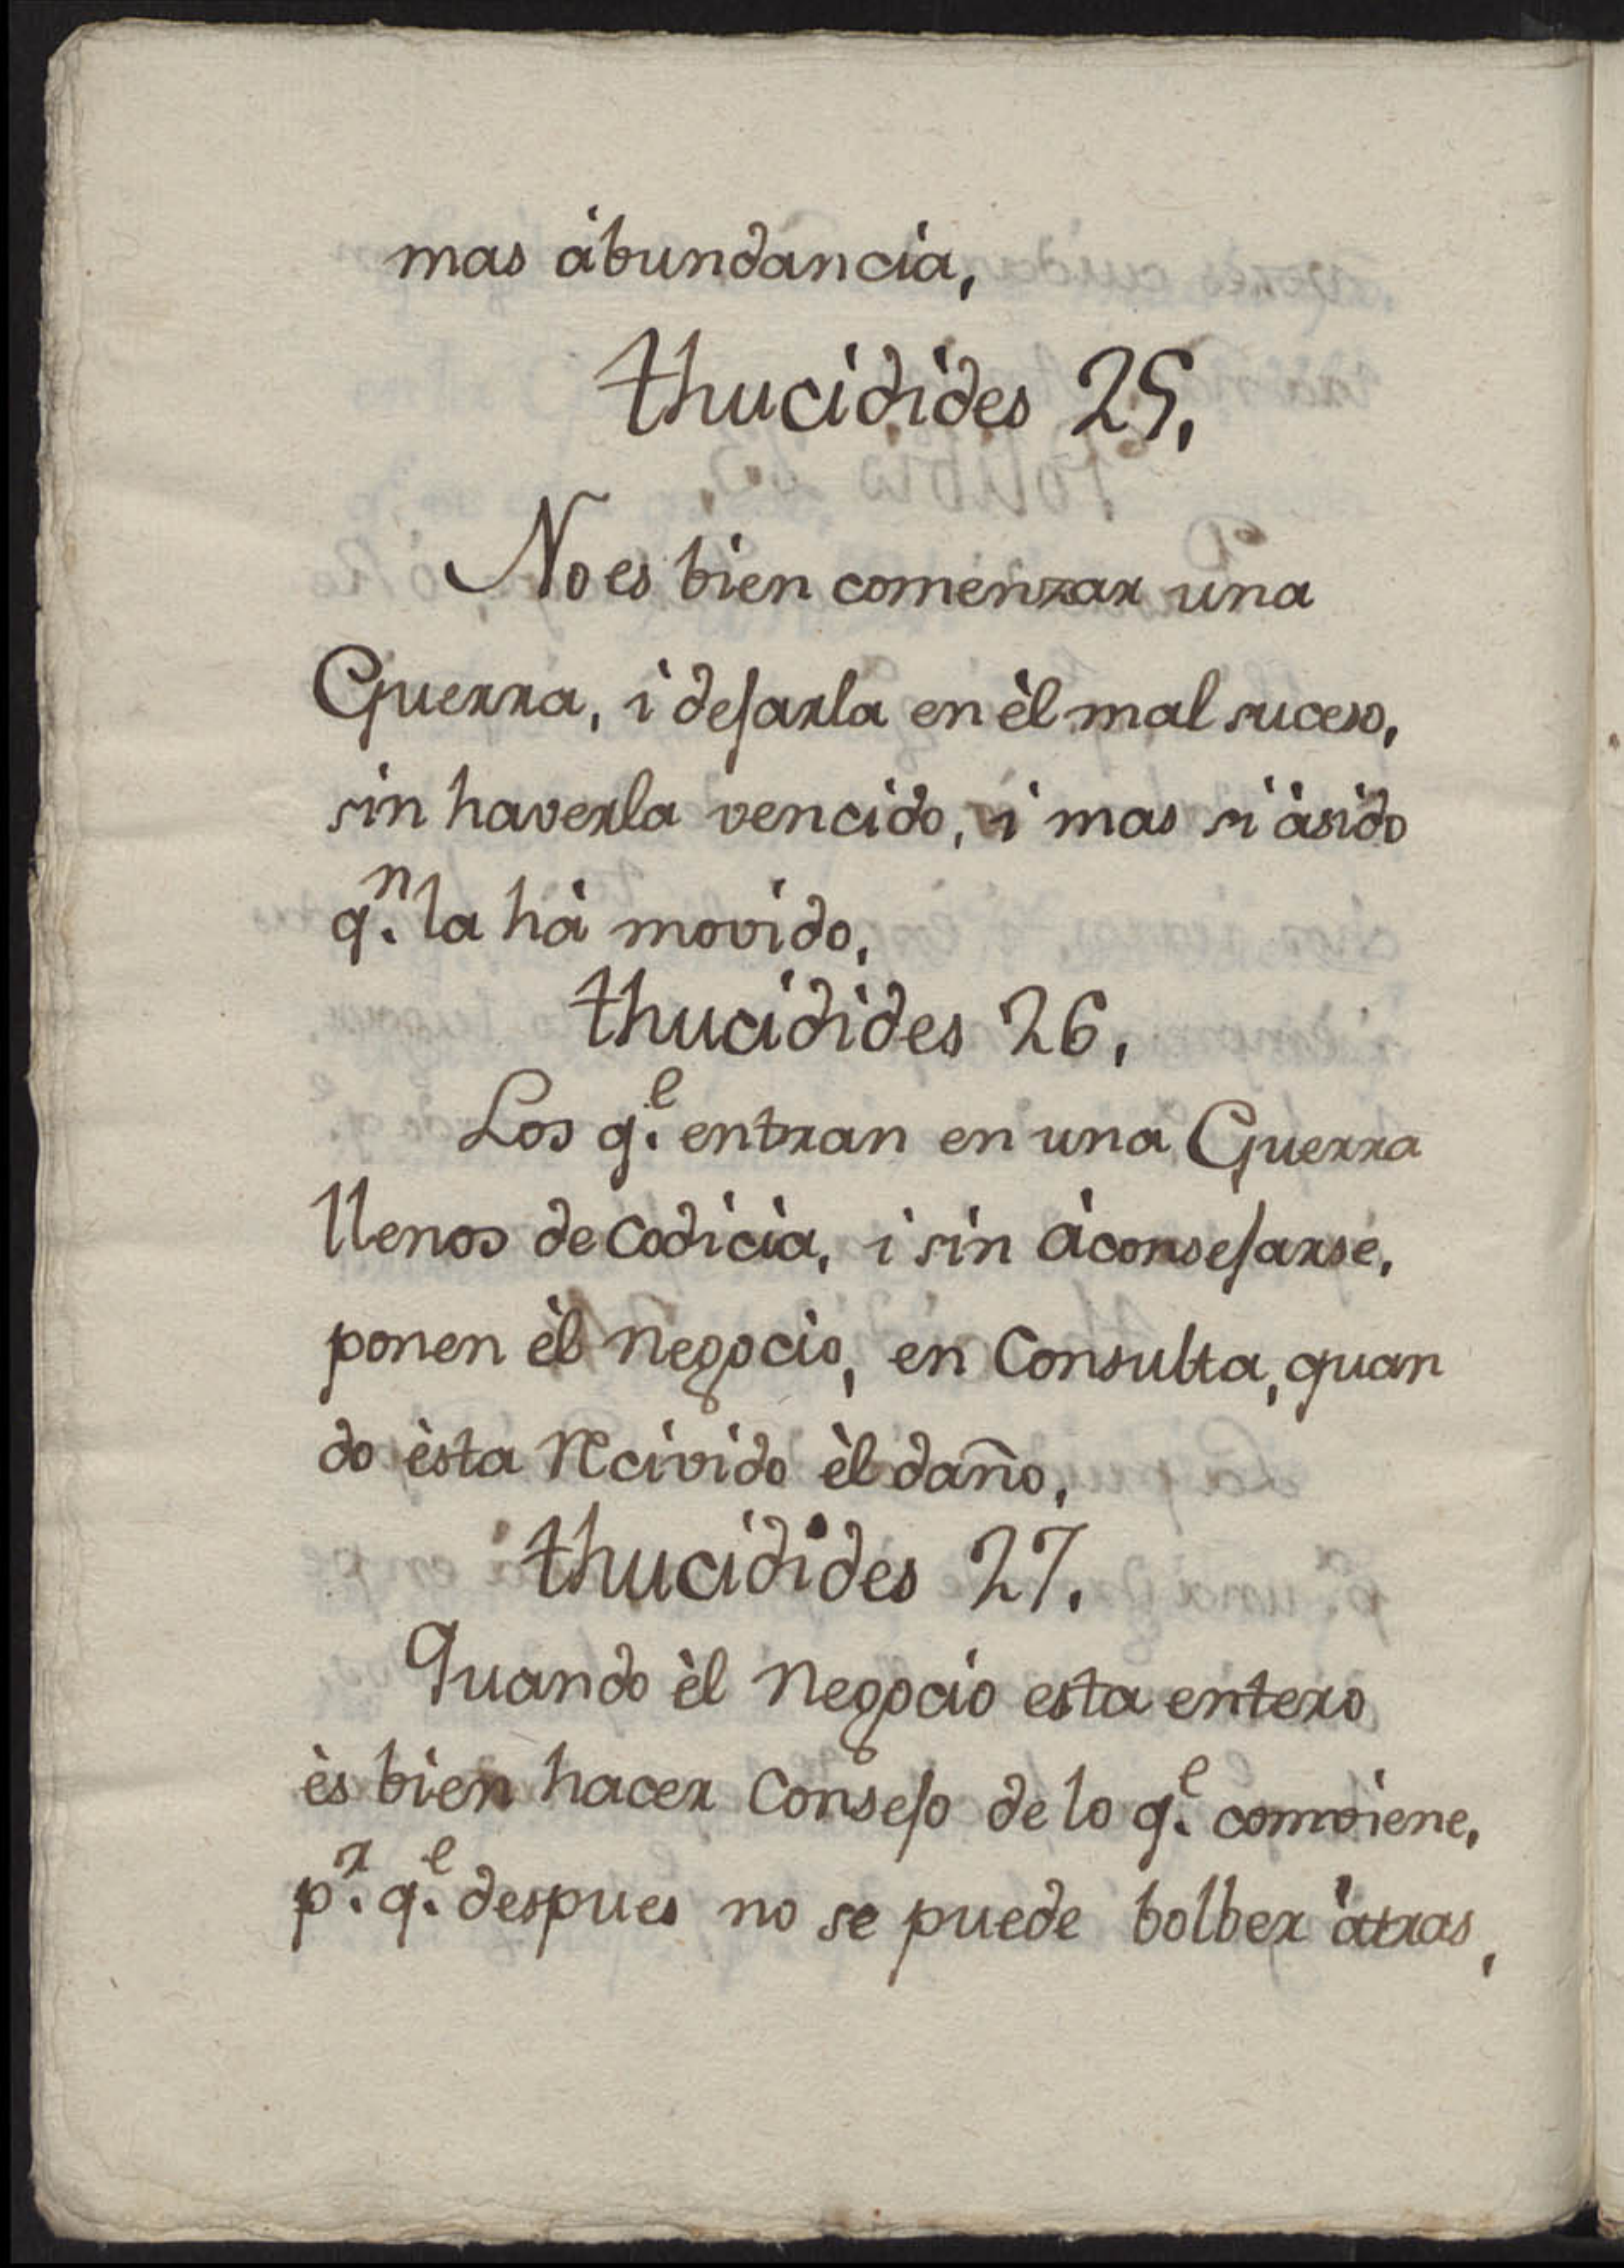 mas àbundancia,
thucidides 25,
No es bien comenzar una
Guerra, i dejarla en èl mal suceso,
sin haverla vencido, i mas si àsido
q.n la hà movido,
thucidides 26,
Los q.e entran en una Guerra
llenos de Codicia, i sin àconsejarse,
ponen èl Negocio, en Consulta, quan
do èsta Recivido èl daño,
thucidides 27.
Quando èl Negocio esta entero
ès bien hacer Consejo de lo q.e comviene,
p.r q.e despues no se puede bolber àtras,